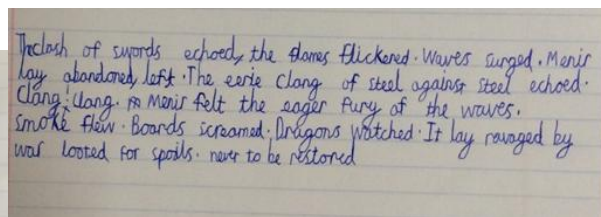 The clash of swords echoed, the flames flickered. Waves surged. Menir
lay abandoned, left. The eerie clang of steel against steel echoed.
Clang! Clang. Menir felt the eager fury of the waves.
Smoke flew. Boards screamed. Dragons watched. It lay ravaged by
war looted for spoils. never to be restored